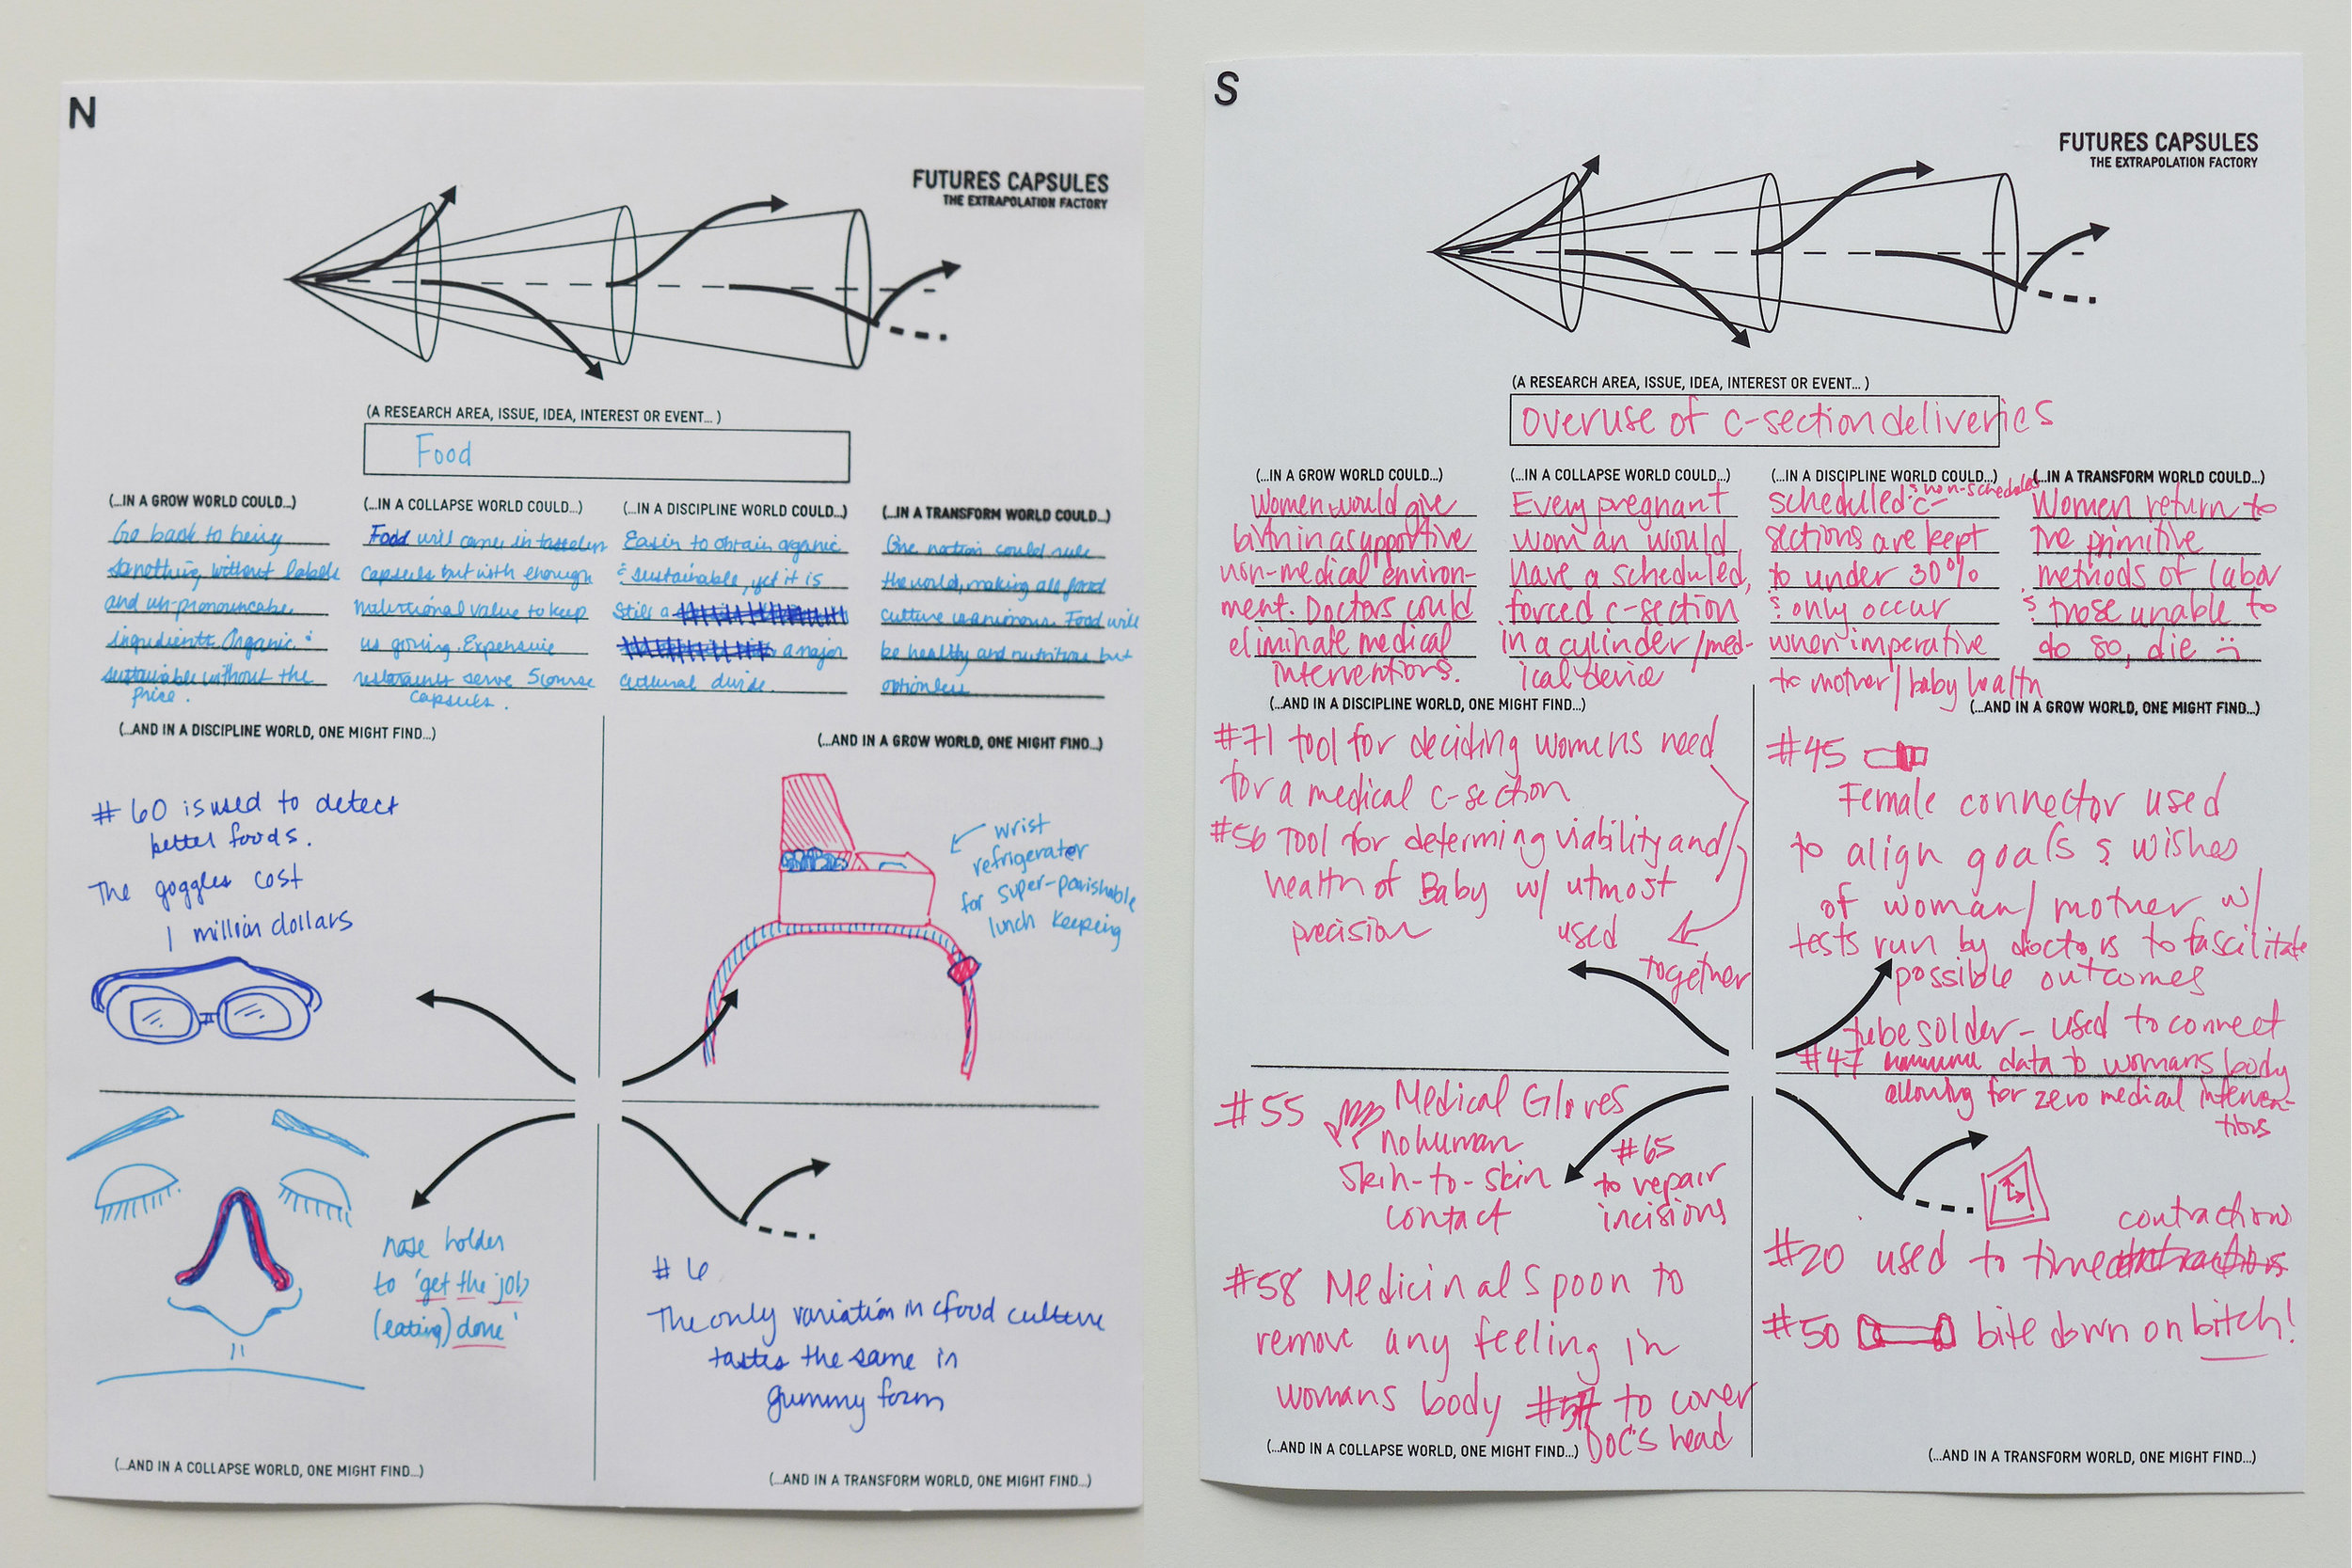 N
FUTURES CAPSULES
THE EXTRAPOLATION FACTORY
(A RESEARCH AREA, ISSUE, IDEA, INTEREST OR EVENT... )
Food
(...IN A GROW WORLD COULD...)
Go back to being
something without labels
and un-pronouncable
ingredients. Organic &
sustainable without the
price.
(...IN A COLLAPSE WORLD COULD...)
Food will come in
capsules but with enough
nutritional value to keep
us going. Expensive
restaurants serve 5 course
capsules.
(...IN A DISCIPLINE WORLD COULD...)
Easier to obtain organic
& sustainable, yet it is
still a
a major
cultural divide.
(...IN A TRANSFORM WORLD COULD...)
One nation could rule
the world, making all food
culture Food will
be healthy and nutritious but
optionless
(...AND IN A DISCIPLINE WORLD, ONE MIGHT FIND...)
#60 is used to detect
better foods.
The goggles cost
1 million dollars
(...AND IN A GROW WORLD, ONE MIGHT FIND...)
wrist
refrigerator
for super-parishable
lunch keeping
nose holder
to 'get the job
(eating) done'
(...AND IN A COLLAPSE WORLD, ONE MIGHT FIND...)
#6
The only variation in food culture
tastes the same in
gummy form
(...AND IN A TRANSFORM WORLD, ONE MIGHT FIND...)
S
FUTURES CAPSULES
THE EXTRAPOLATION FACTORY
(A RESEARCH AREA, ISSUE, IDEA, INTEREST OR EVENT... )
overuse of c-section deliveries
(...IN A GROW WORLD COULD...)
Women would give
birth in a supportive
non-medical environ-
ment. Doctors could
eliminate medical
interventions.
(...IN A COLLAPSE WORLD COULD...)
Every pregnant
woman would
have a scheduled,
forced c-section
in a cylinder/med-
ical device
(...IN A DISCIPLINE WORLD COULD...)
scheduled & non-scheduled c-
sections are kept
to under 30%
& only occur
when imperative
to mother/baby health
(...IN A TRANSFORM WORLD COULD...)
Women return to
the primitive
methods of labor
& those unable to
do so, die
(...AND IN A DISCIPLINE WORLD, ONE MIGHT FIND...)
#71 tool for deciding womens need
for a medical c-section
#56 Tool for determining viability and
health of Baby w/ utmost
precision
used
together
(...AND IN A GROW WORLD, ONE MIGHT FIND...)
#45
Female connector used
to align goals & wishes
of woman/mother w/
tests run by doctors to fascilitate
possible outcomes
tube solder - used to connect
#47 data to womans body
allowing for zero medical interven-
tions
#55 Medical Gloves
no human
skin-to-skin
contact
#65
to repair
incisions
#58 Medicinal Spoon to
remove any feeling in
womans body #57 to cover
Doc's head
(...AND IN A COLLAPSE WORLD, ONE MIGHT FIND...)
contractions
#20 used to time
#50 bite down on bitch!
(...AND IN A TRANSFORM WORLD, ONE MIGHT FIND...)